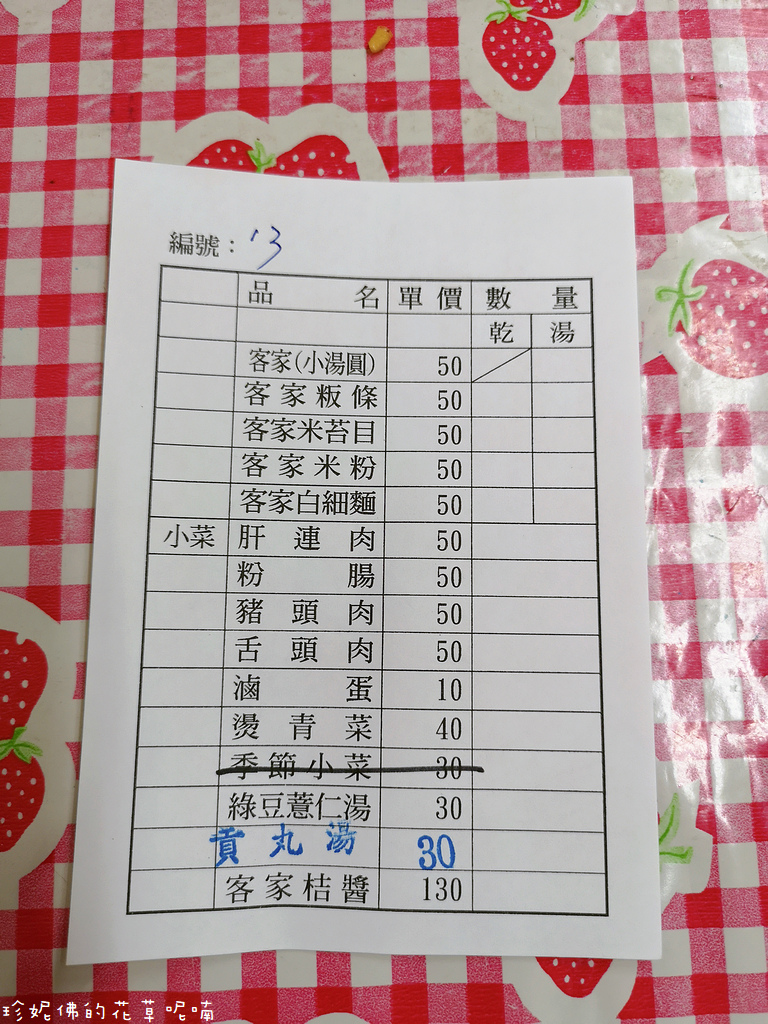 編號：13
品名 單價 數量
乾 湯
客家(小湯圓) 50
客家粄條 50
客家米苔目 50
客家米粉 50
客家白細麵 50
小菜 肝連肉 50
粉腸 50
豬頭肉 50
舌頭肉 50
滷蛋 10
燙青菜 40
季節小菜 30
綠豆薏仁湯 30
貢丸湯 30
客家桔醬 130
珍妮佛的花草呢喃